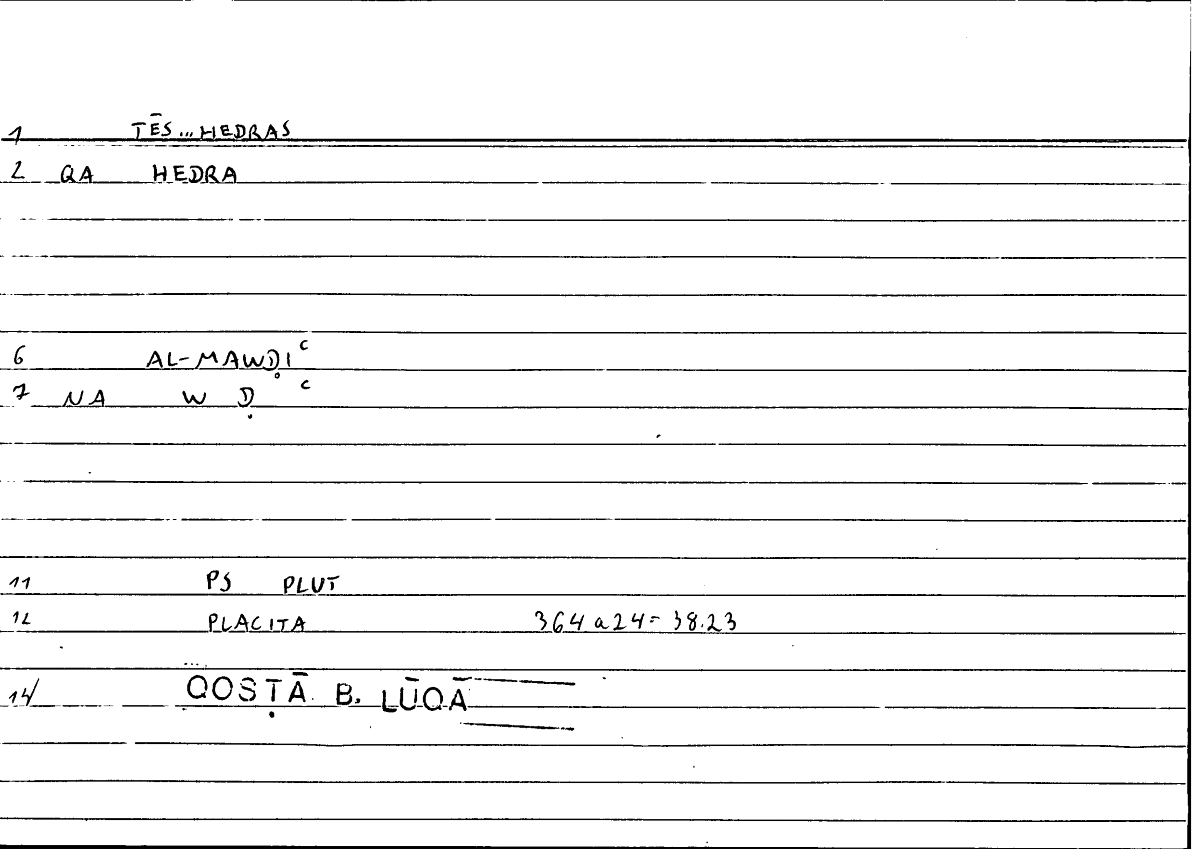 1 TĒS...HEDRAS
2 QA HEDRA
6 AL-MAWḌIᶜ
7 NA W Ḍ ᶜ
11 PS PLUT
12 PLACITA 364a24=38.23
14/ QOSṬĀ B. LŪQĀ